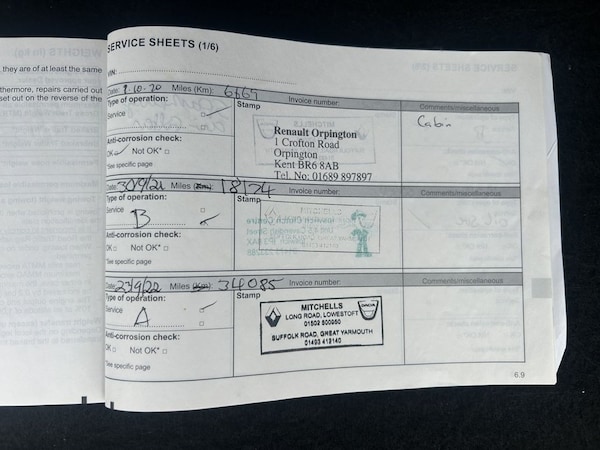 they are of at least the same
thermore, repairs carried out
set out on the reverse of the
SERVICE SHEETS (1/6)
VIN:
Date: 9-10-20 Miles (Km): 6669
Type of operation:
Service
Anti-corrosion check:
OK Not OK*
*See specific page
Stamp
Invoice number:
Renault Orpington
1 Crofton Road
Orpington
Kent BR6 8AB
Tel. No: 01689 897897
Comments/miscellaneous
Cabin
Date: 30/9/21 Miles (Km): 18124
Type of operation:
Service
B
Anti-corrosion check:
OK Not OK*
*See specific page
Stamp
Invoice number:
Comments/miscellaneous
Date: 23/9/22 Miles (Km): 34085
Type of operation:
Service
A
Anti-corrosion check:
OK Not OK*
*See specific page
Stamp
Invoice number:
MITCHELLS
LONG ROAD, LOWESTOFT
SUFFOLK ROAD, GREAT YARMOUTH
Comments/miscellaneous
6.9